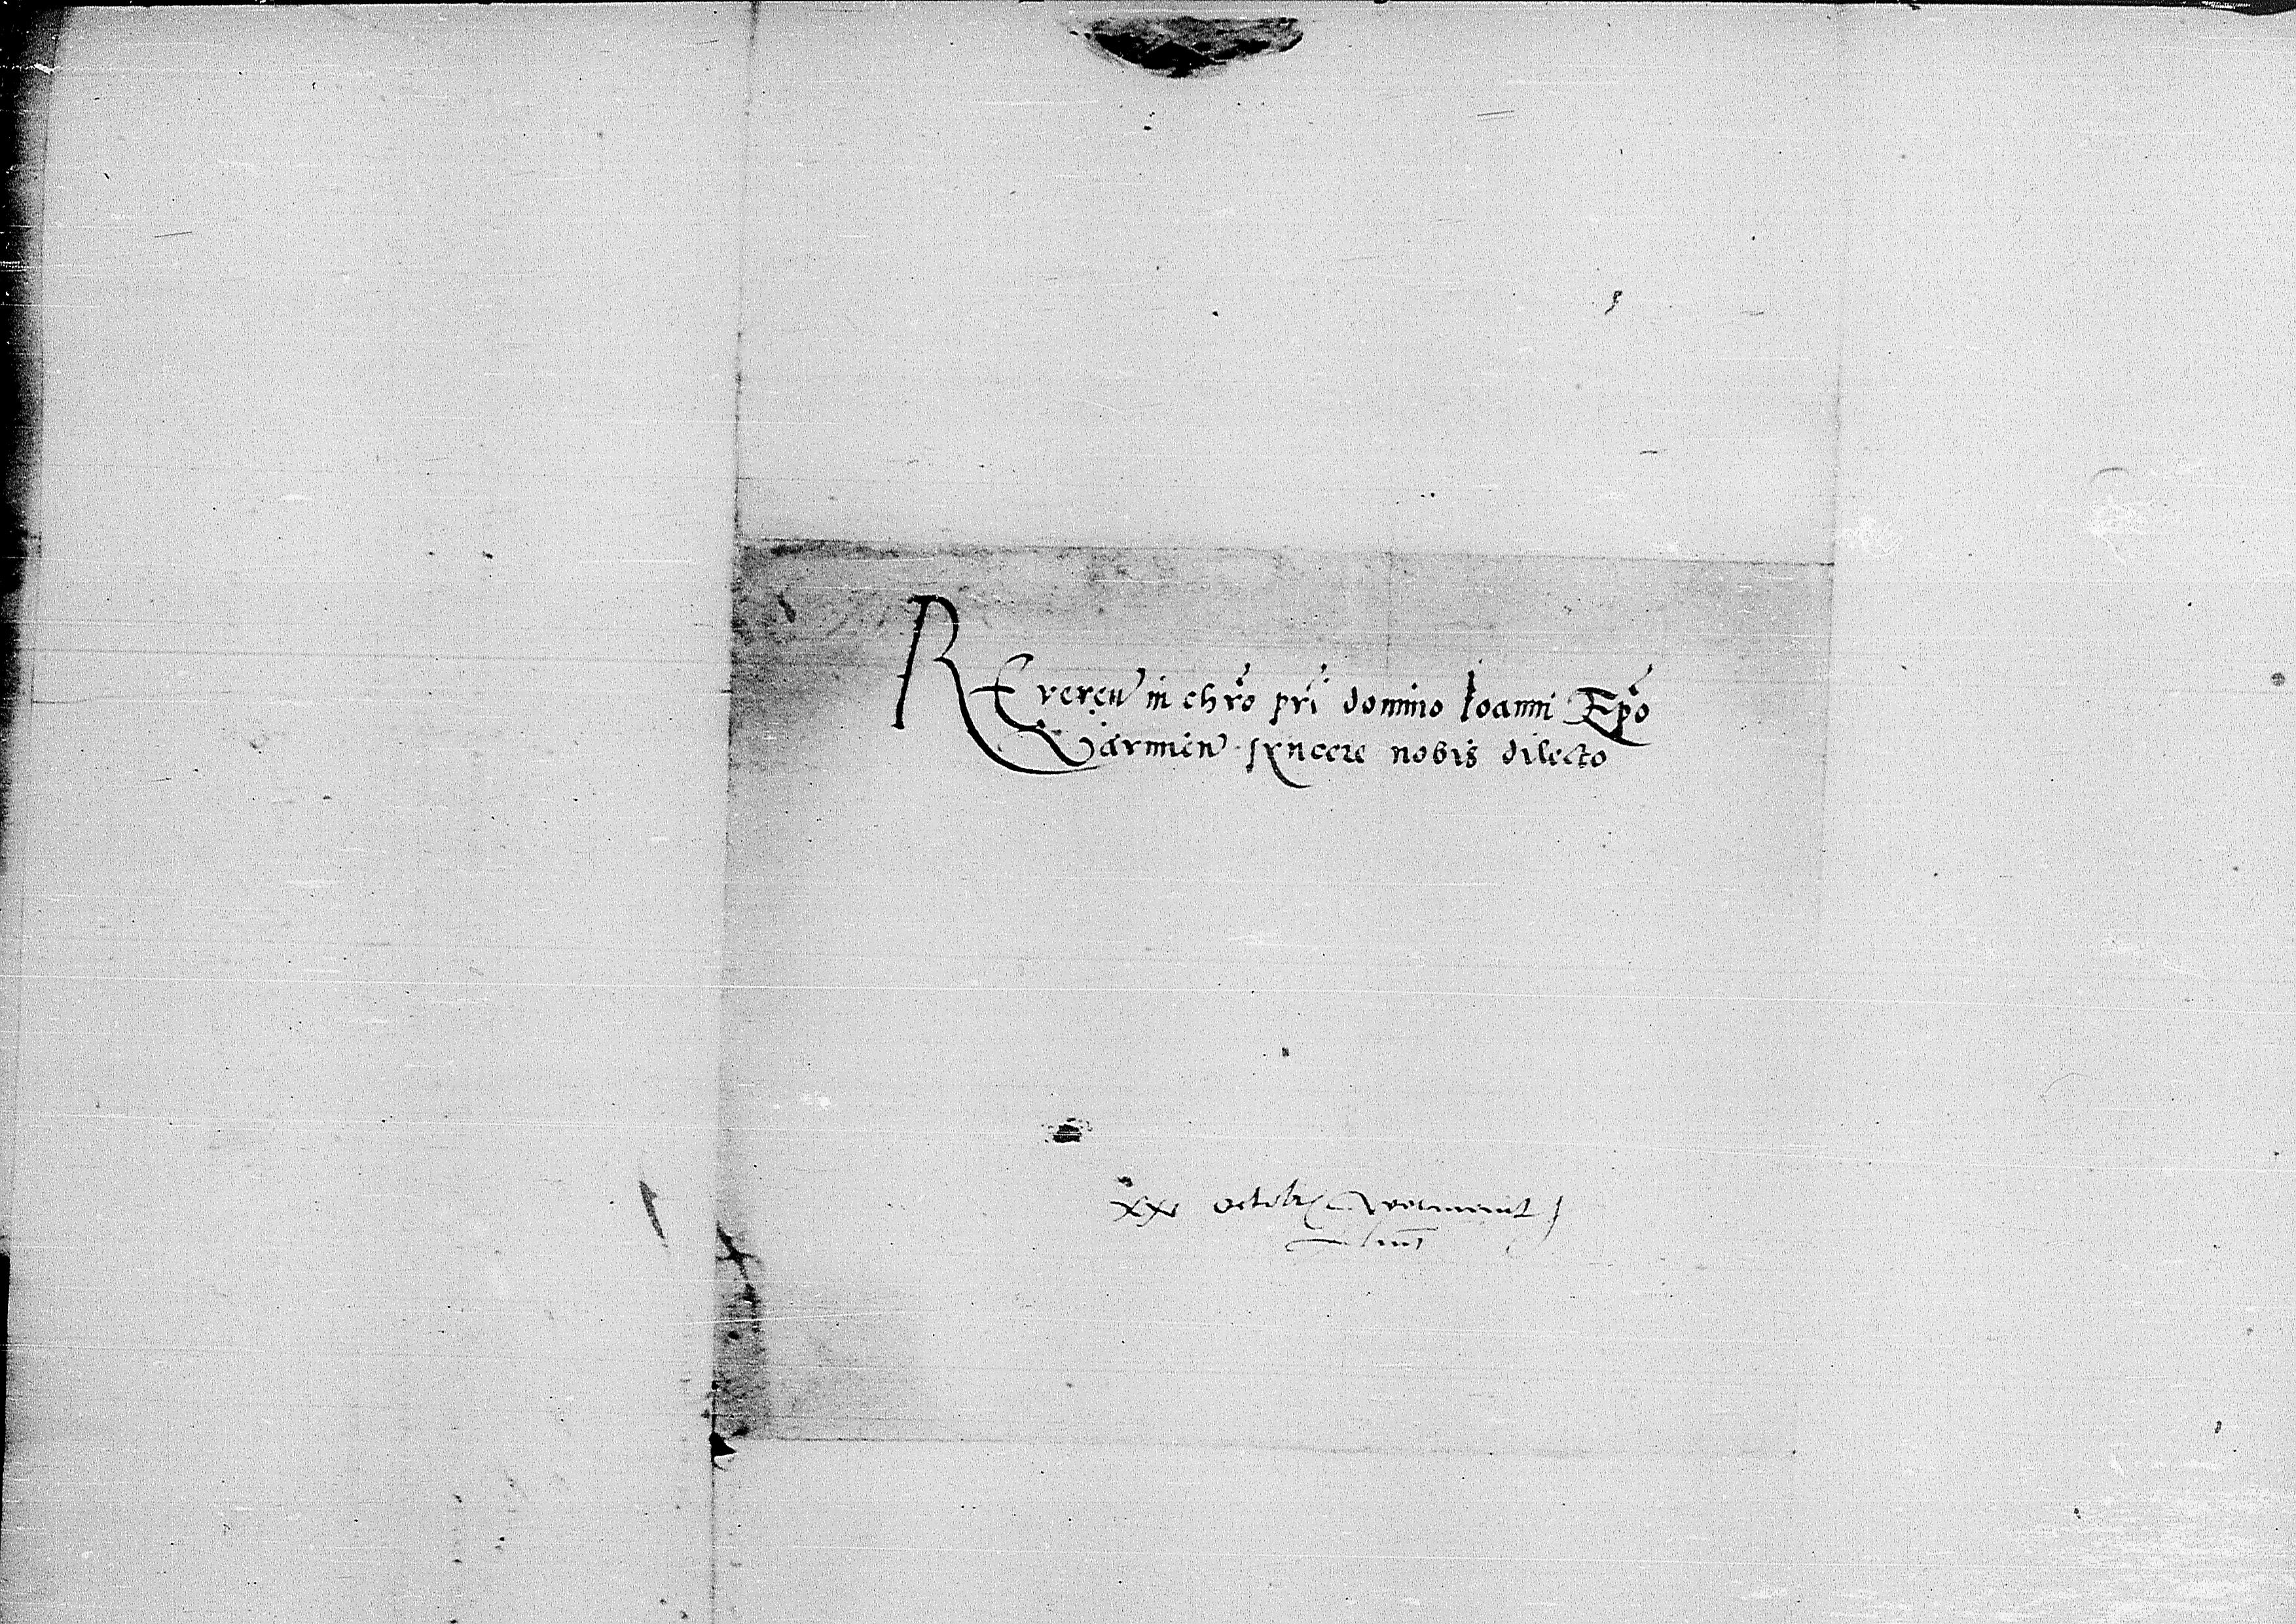 REveren in chro pri domino Ioanni Epo
Varmien syncere nobis dilecto
xx octobr